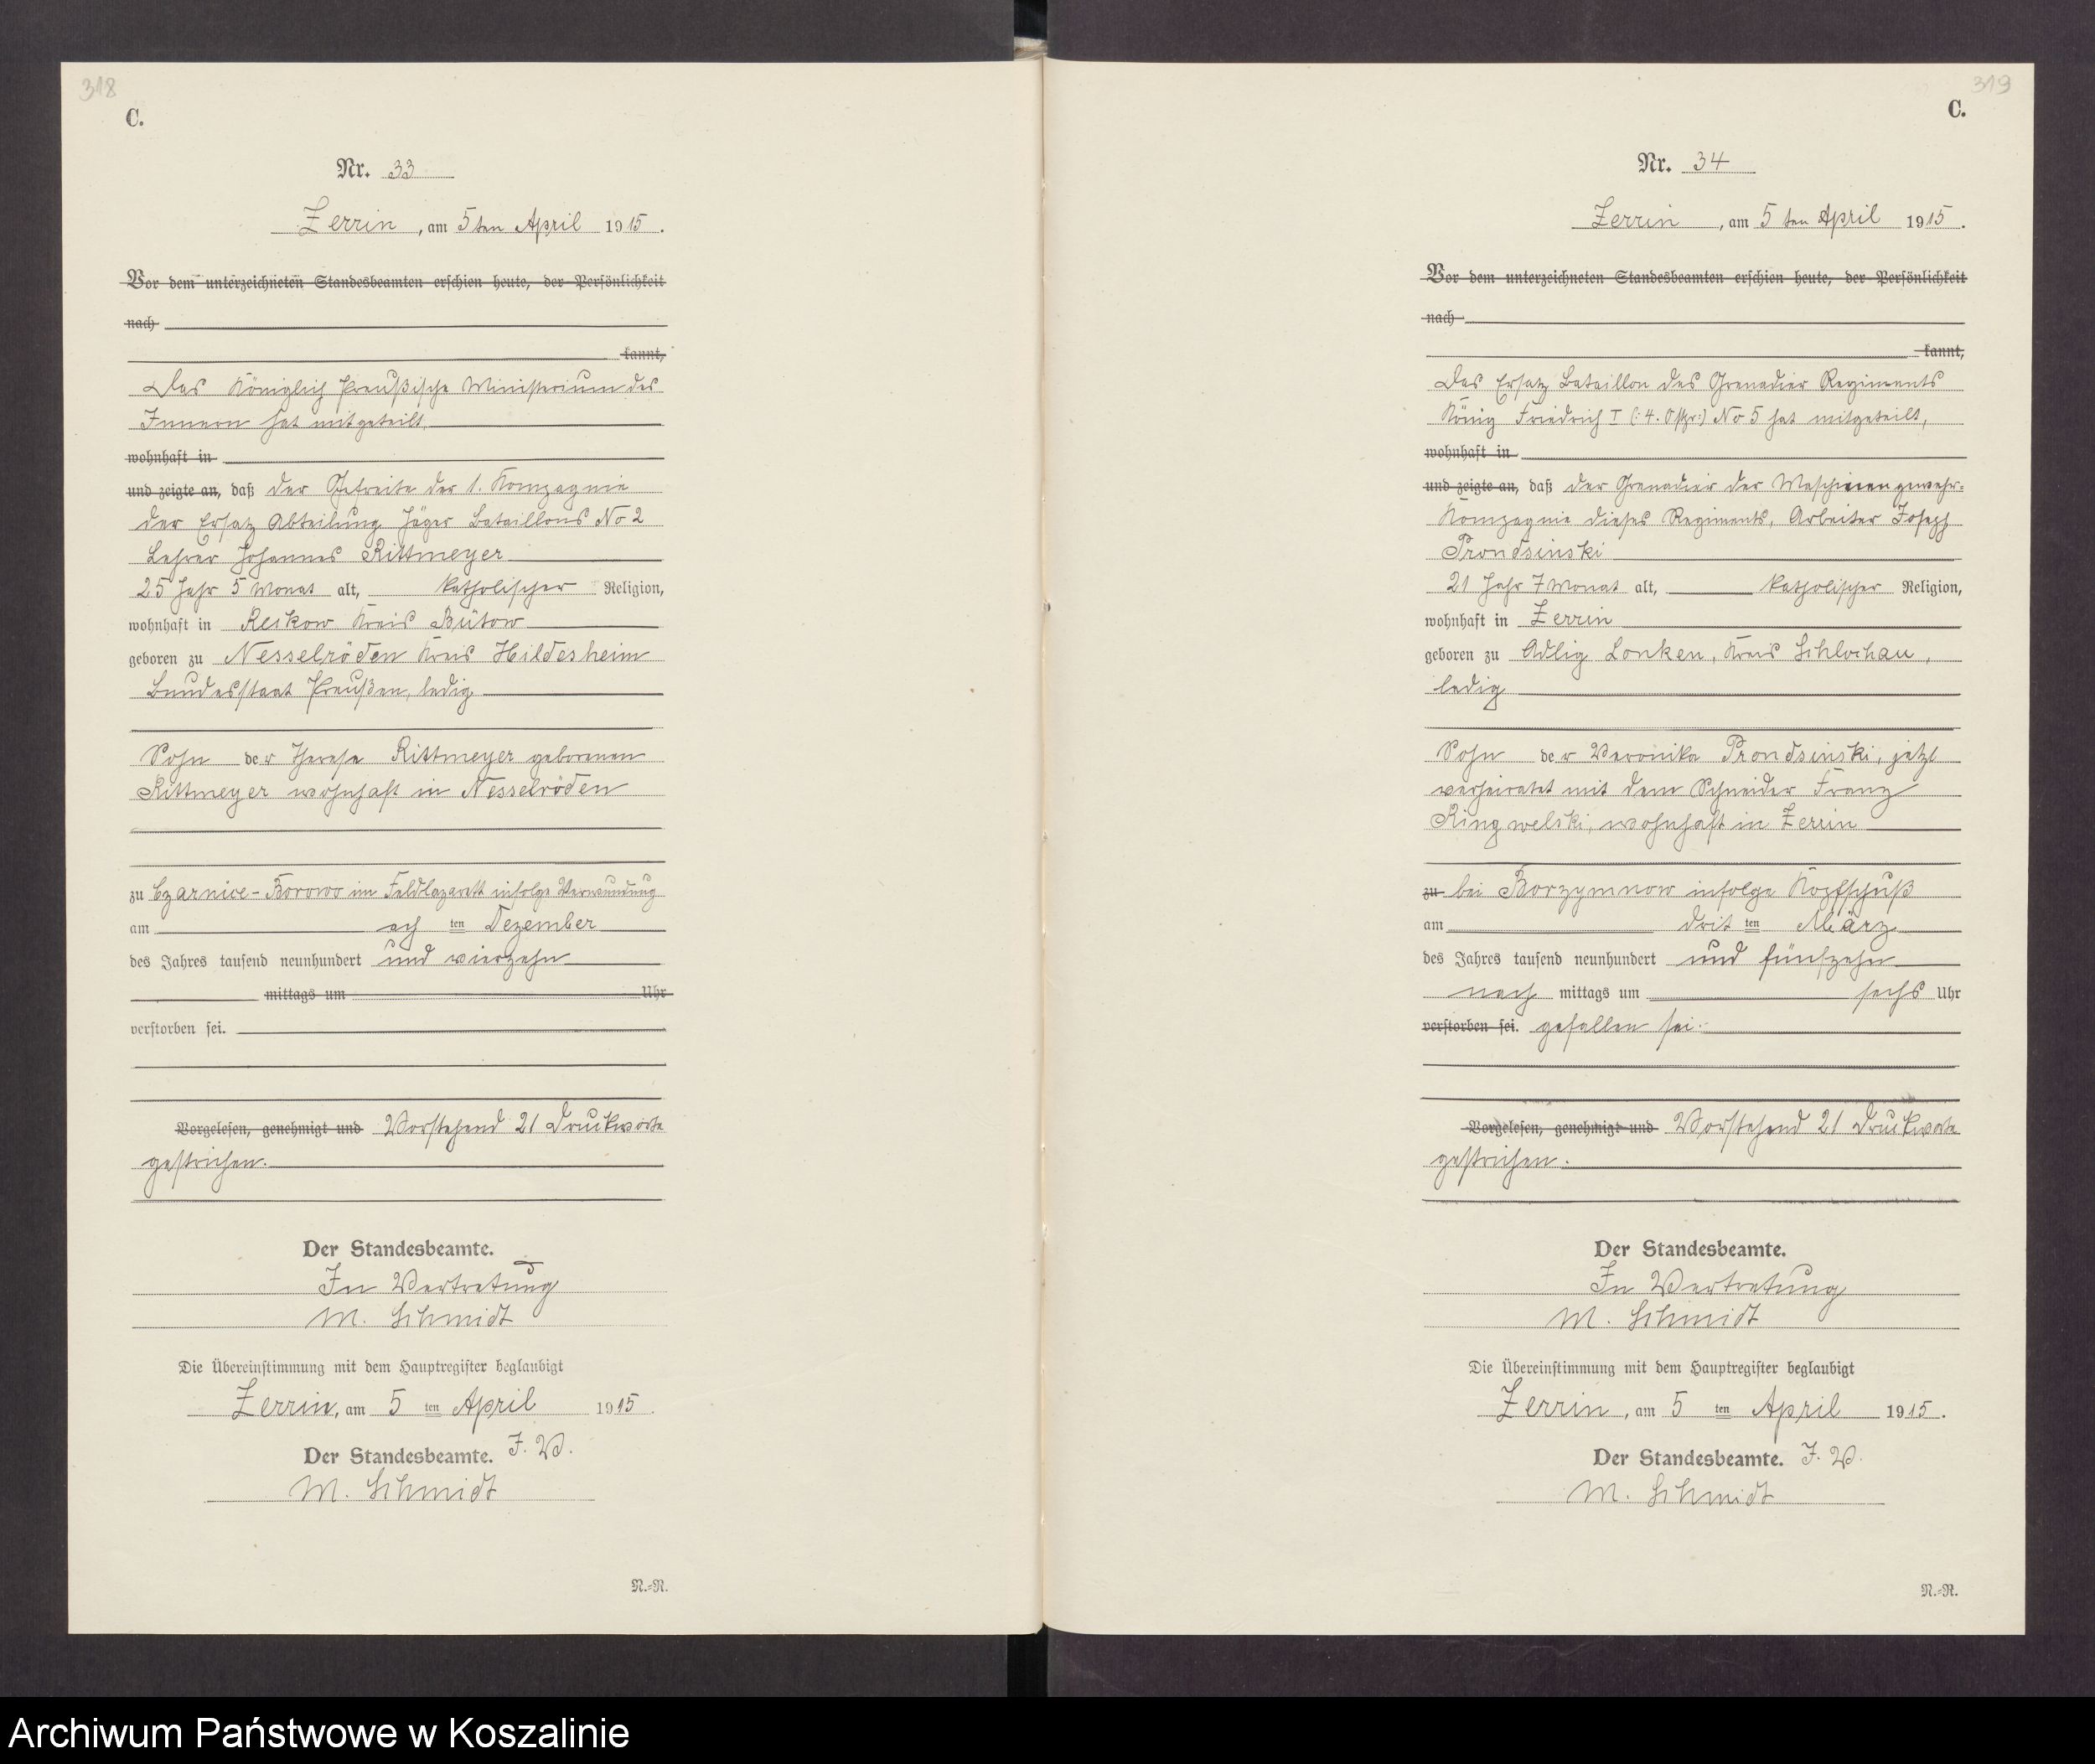 318
C.
Nr. 33
Zerrin, am 5ten April 1915.
Vor dem unterzeichneten Standesbeamten erschien heute, der Persönlichkeit
nach
kannt,
Das Königlich Preußische Ministerium des
Innern hat mitgeteilt,
wohnhaft in
und zeigte an, daß der Gefreite der 1. Kompagnie
der Ersatz Abteilung Jäger Bataillons No 2
Lehrer Johannes Rittmeyer
25 Jahr 5 Monat alt, katholischer Religion,
wohnhaft in Reckow Kreis Bütow
geboren zu Nesselröden Kreis Hildesheim
Bundesstaat Preußen, ledig
Sohn der Therese Rittmeyer geborenen
Rittmeyer wohnhaft in Nesselröden
zu Czarnice-Borowo im Feldlazarett infolge Verwundung
am ach ten Dezember
des Jahres tausend neunhundert und vierzehn
mittags um Uhr
verstorben sei.
Vorgelesen, genehmigt und Vorstehend 21 Druckworte
gestrichen.
Der Standesbeamte.
In Vertretung
M. Schmidt
Die Übereinstimmung mit dem Hauptregister beglaubigt
Zerrin, am 5 ten April 1915.
Der Standesbeamte. I. V.
M. Schmidt
N.=R.
319
C.
Nr. 34
Zerrin, am 5 ten April 1915.
Vor dem unterzeichneten Standesbeamten erschien heute, der Persönlichkeit
nach
kannt,
Das Ersatz Bataillon des Grenadier Regiments
König Friedrich I (:4. Ostpr:) No 5 hat mitgeteilt,
wohnhaft in
und zeigte an, daß der Grenadier der Maschinengewehr=
Kompagnie dieses Regiments, Arbeiter Joseph
Prondsinski
21 Jahr 7 Monat alt, katholischer Religion,
wohnhaft in Zerrin
geboren zu Adlig Lonken, Kreis Schlochau,
ledig
Sohn der Veronika Prondsinski, jetzt
verheiratet mit dem Schneider Franz
Ringwelski, wohnhaft in Zerrin
zu bei Borzymnow infolge Kopfschuß
am drit ten März
des Jahres tausend neunhundert und fünfzehn
nach mittags um sechs Uhr
verstorben sei. gefallen sei.
Vorgelesen, genehmigt und Vorstehend 21 Druckworte
gestrichen.
Der Standesbeamte.
In Vertretung
M. Schmidt
Die Übereinstimmung mit dem Hauptregister beglaubigt
Zerrin, am 5 ten April 1915.
Der Standesbeamte. I. V.
M. Schmidt
N.=R.
Archiwum Państwowe w Koszalinie